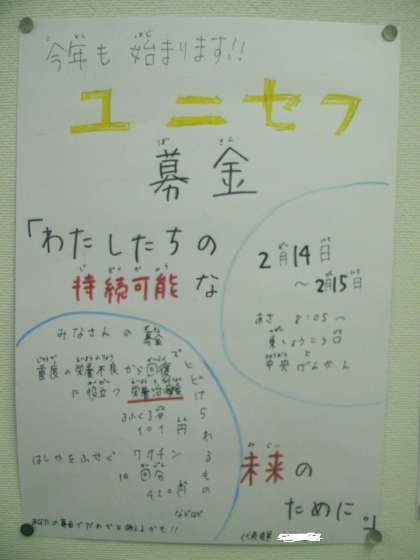 今年も 始まります!!
ユニセフ
募金
「わたしたちの
持続可能な
2月14日
～2月15日
あさ 8:05～
東しょうこう口
中央げんかん
みなさんの募金でとどけられるもの
重度の栄養不良から回復
に役立つ 栄養治療食
3ふくろ分
101円
はしかをふせぐ ワクチン
10回分
420円
などなど
未来の
ために。」
あなたの募金でだれかを救えるかも!!